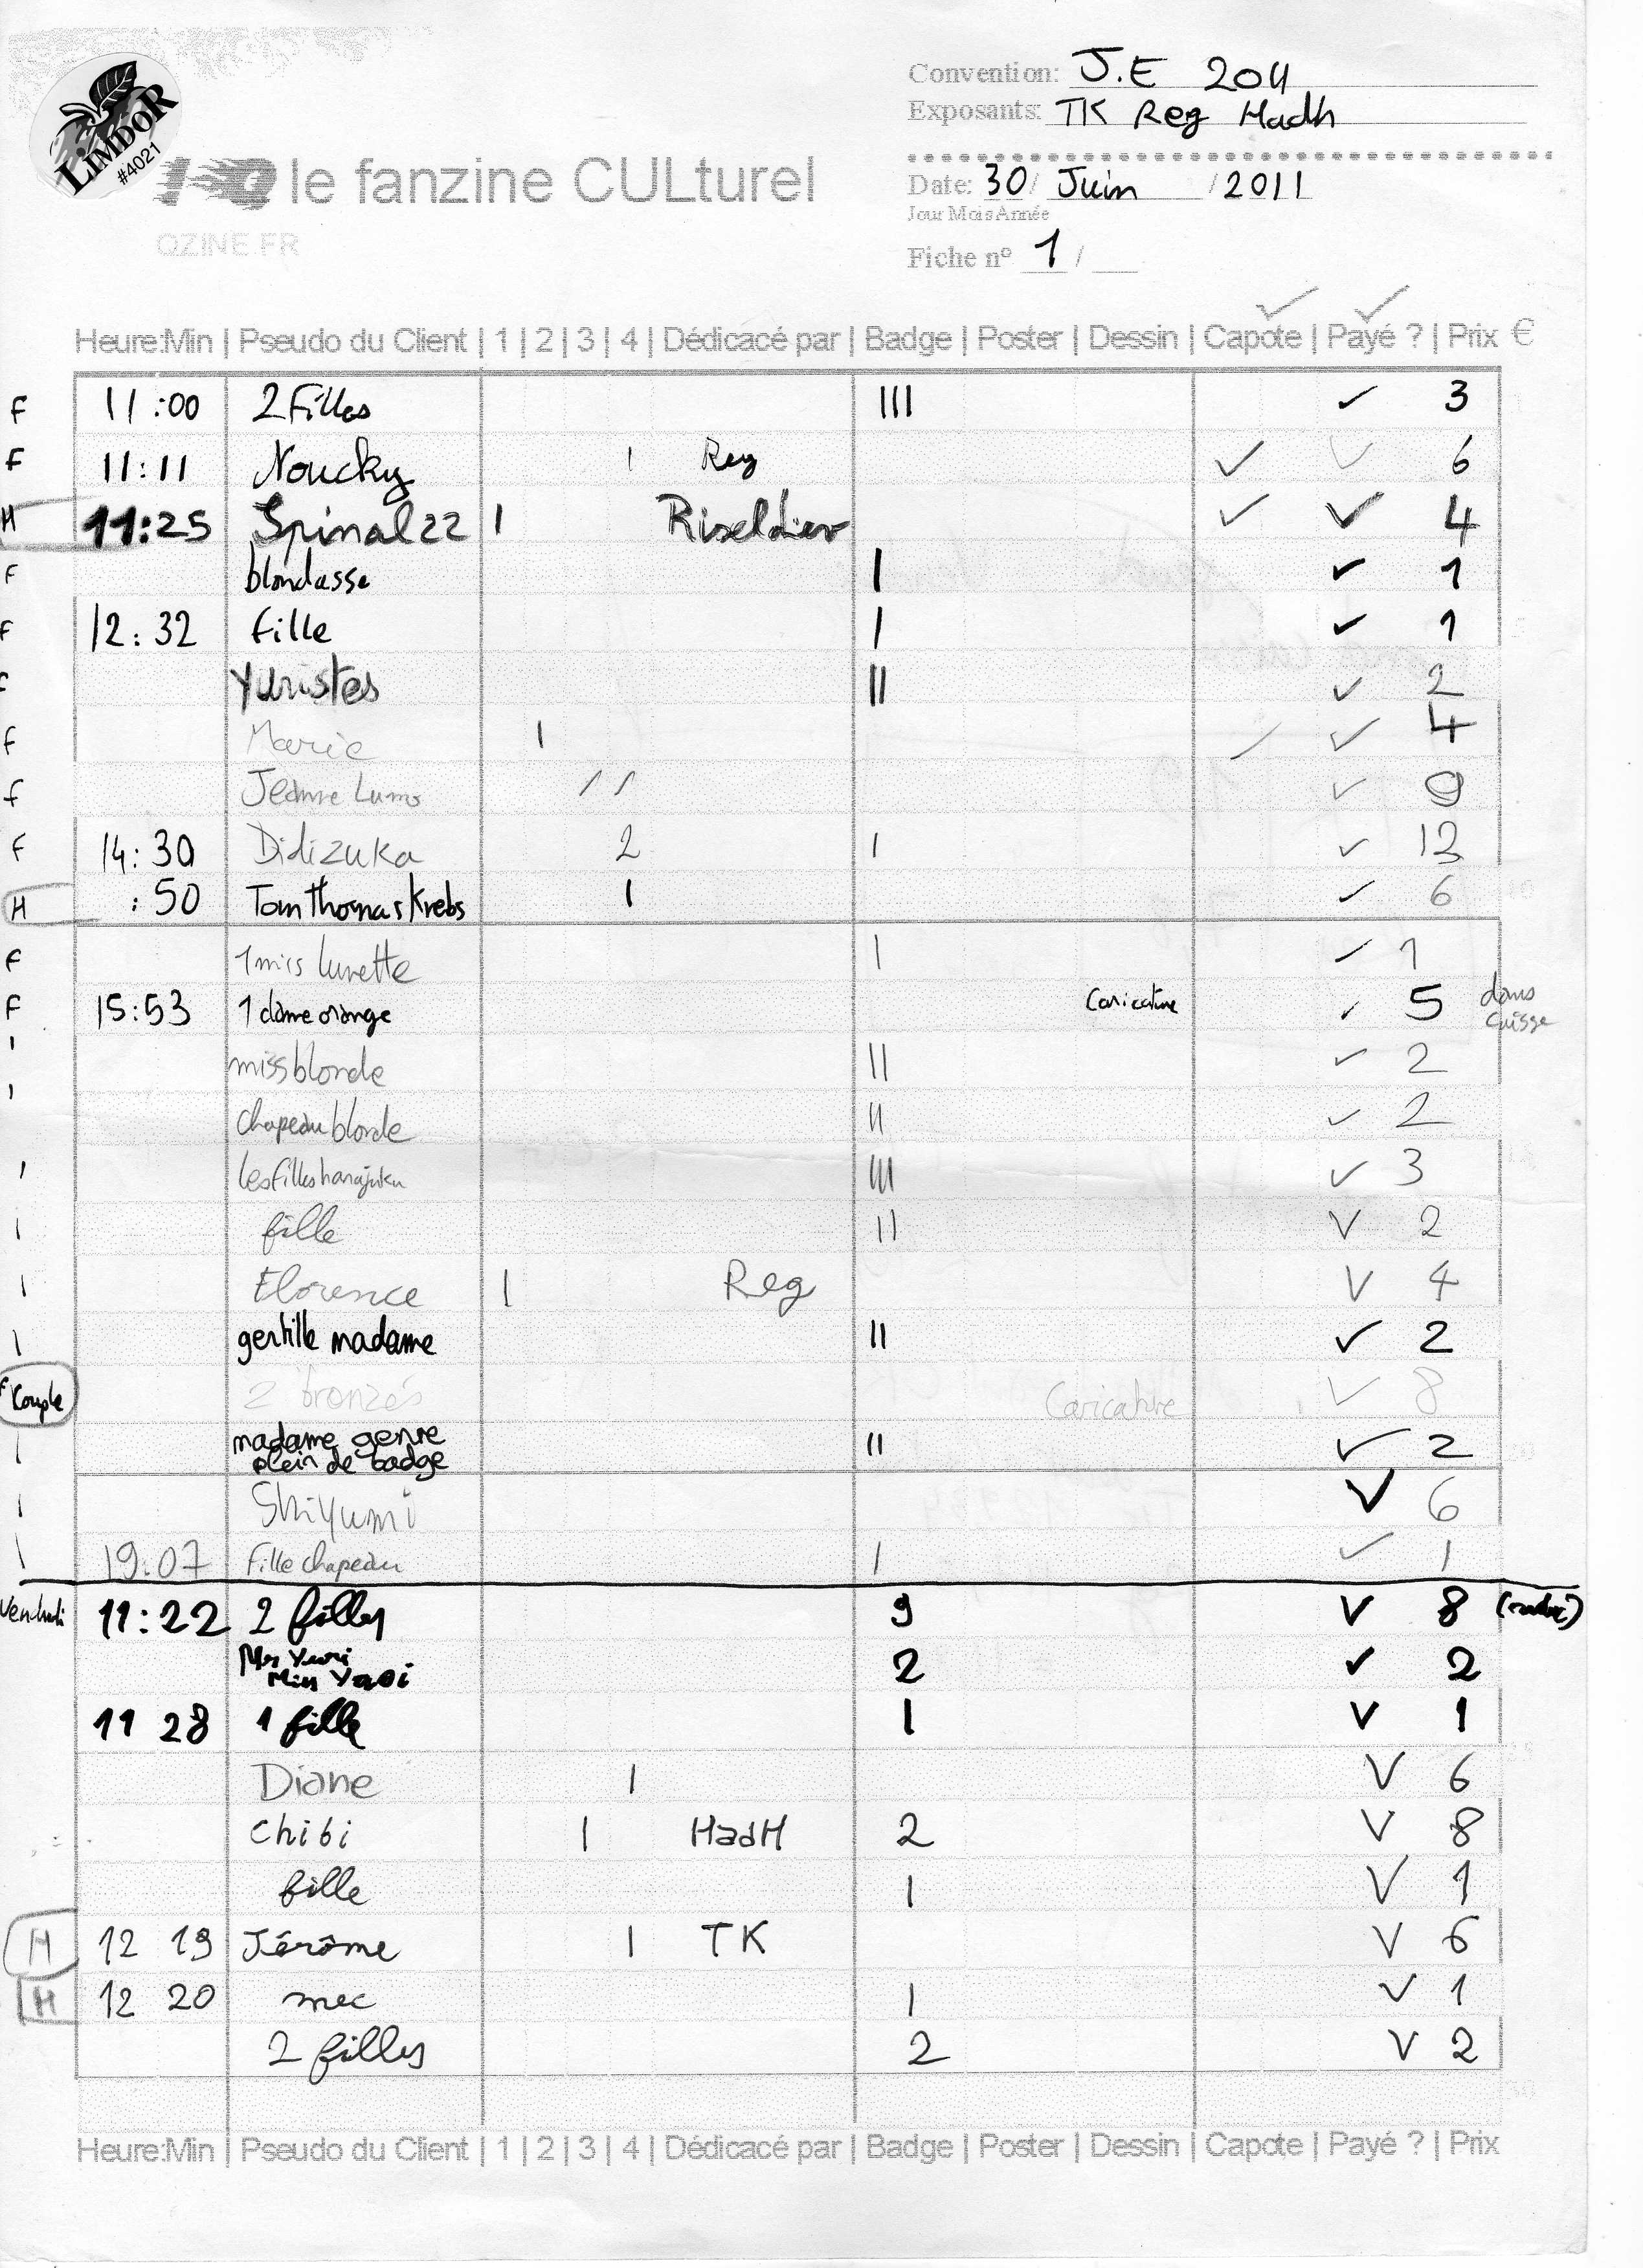 LIMDOR
#4021
le fanzine CULturel
QZINE.FR
Convention: J.E 2011
Exposants: TK Reg HadH
Date: 30/ Juin / 2011
Jour Mois Année
Fiche n° 1 /
Heure:Min | Pseudo du Client | 1 | 2 | 3 | 4 | Dédicacé par | Badge | Poster | Dessin | Capote | Payé ? | Prix €
F 11:00 2 Filles III ✓ 3
F 11:11 Noucky I Reg ✓ ✓ 6
H 11:25 Spinal22 I Riseldier ✓ ✓ 4
F blondasse I ✓ 1
F 12:32 fille I ✓ 1
F Yuristes II ✓ 2
F Marie I ✓ ✓ 4
F Jeanne I I ✓ 9
F 14:30 Didizuka 2 I ✓ 13
H :50 Tom Thomas Krebs I ✓ 6
F 1 miss lunette I ✓ 1
F 15:53 1 dame orange Caricature ✓ 5 dans caisse
I miss blonde II ✓ 2
I chapeau blonde II ✓ 2
I les filles harajuku III ✓ 3
I fille II V 2
I Florence I Reg V 4
I gentille madame II ✓ 2
F Couple 2 bronzés Caricature ✓ 8
I madame genre plein de badge II ✓ 2
I Shiyumi V 6
I 19:07 fille chapeau I ✓ 1
Vendredi 11:22 2 filles 9 V 8
Mrs Yuri
Miss Yaoi 2 ✓ 2
11 28 1 fille 1 V 1
Diane I V 6
Chibi I HadH 2 V 8
fille 1 V 1
H 12 19 Jérôme I TK V 6
H 12 20 mec 1 V 1
2 filles 2 V 2
Heure:Min | Pseudo du Client | 1 | 2 | 3 | 4 | Dédicacé par | Badge | Poster | Dessin | Capote | Payé ? | Prix